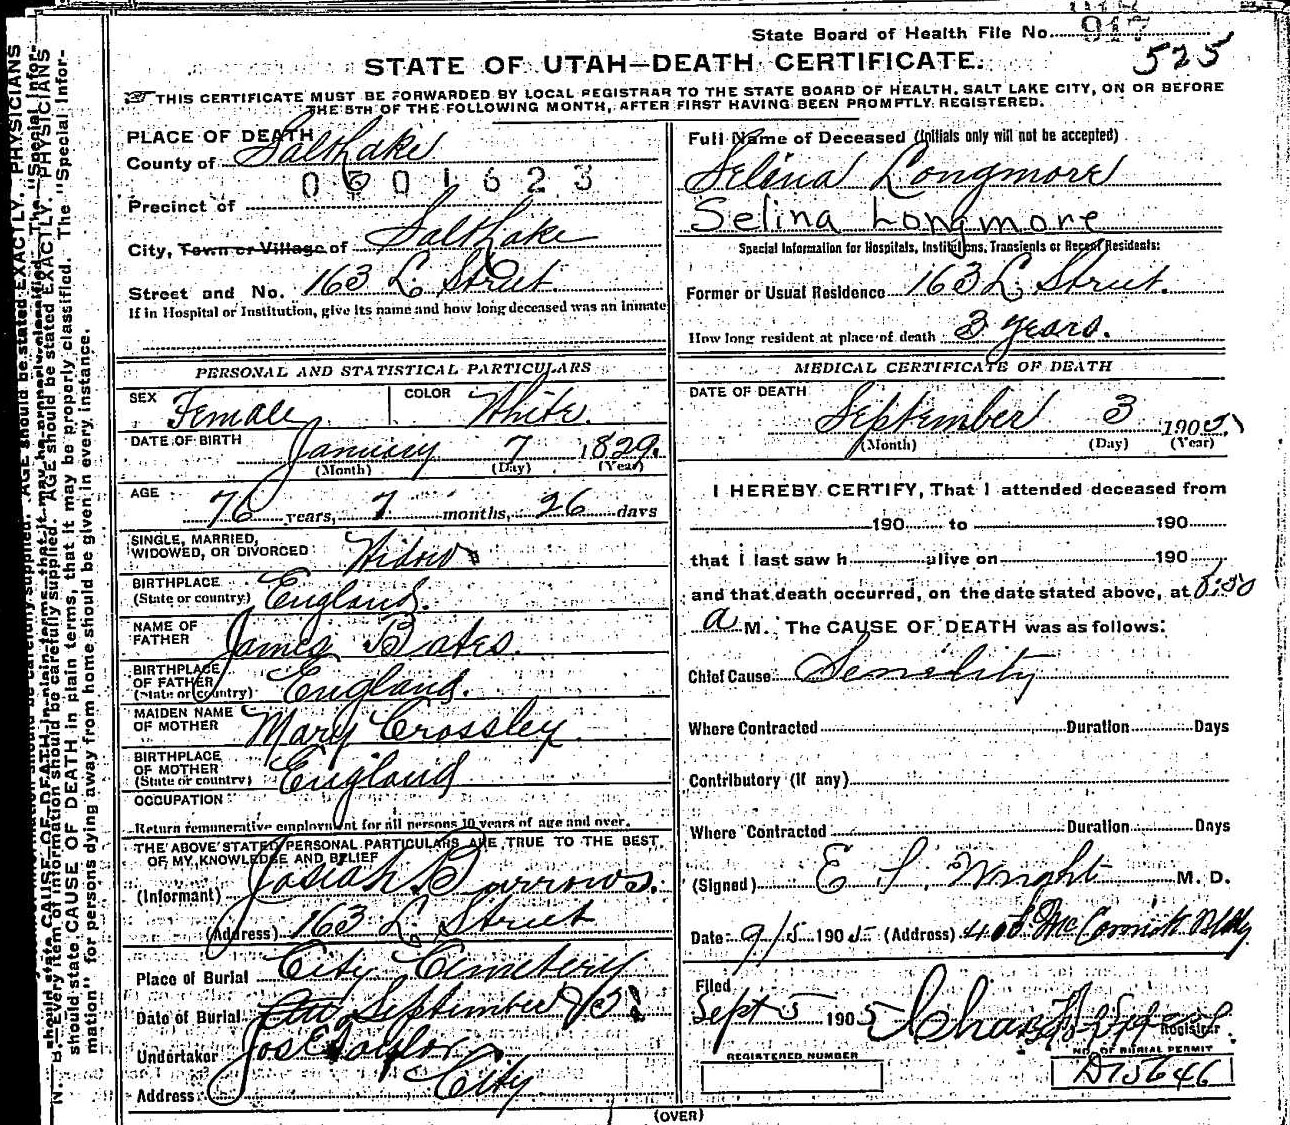 State Board of Health File No. 917
525
STATE OF UTAH—DEATH CERTIFICATE.
THIS CERTIFICATE MUST BE FORWARDED BY LOCAL REGISTRAR TO THE STATE BOARD OF HEALTH, SALT LAKE CITY, ON OR BEFORE
THE 5TH OF THE FOLLOWING MONTH, AFTER FIRST HAVING BEEN PROMPTLY REGISTERED.
PLACE OF DEATH
County of Salt Lake
0601623
Precinct of
City, Town or Village of Salt Lake
Street and No. 163 L. Street
If in Hospital or Institution, give its name and how long deceased was an inmate
Full Name of Deceased (Initials only will not be accepted)
Selina Longmore
Selina Longmore
Special Information for Hospitals, Institutions, Transients or Recent Residents:
Former or Usual Residence 163 L. Street.
How long resident at place of death 3 years.
PERSONAL AND STATISTICAL PARTICULARS
SEX Female COLOR White.
DATE OF BIRTH January 7 1829.
(Month) (Day) (Year)
AGE 76 years, 7 months, 26 days
SINGLE, MARRIED,
WIDOWED, OR DIVORCED Widow
BIRTHPLACE
(State or country) England.
NAME OF
FATHER James Bates.
BIRTHPLACE
OF FATHER
(State or country) England.
MAIDEN NAME
OF MOTHER Mary Crossley
BIRTHPLACE
OF MOTHER
(State or country) England
OCCUPATION
Return remunerative employment for all persons 10 years of age and over.
THE ABOVE STATED PERSONAL PARTICULARS ARE TRUE TO THE BEST
OF MY KNOWLEDGE AND BELIEF
(Informant) Josiah Burrows.
(Address) 163 L. Street
Place of Burial City Cemetery
Date of Burial September
Undertaker Jos E Taylor
Address City
MEDICAL CERTIFICATE OF DEATH
DATE OF DEATH
September 3 1905
(Month) (Day) (Year)
I HEREBY CERTIFY, That I attended deceased from
190 to 190
that I last saw h alive on 190
and that death occurred, on the date stated above, at
a M. The CAUSE OF DEATH was as follows:
Chief Cause Senility
Where Contracted Duration Days
Contributory (if any)
Where Contracted Duration Days
(Signed) E. S. Wright M. D.
Date 9/5 1905 (Address) McCornick Bldg
Filed
Sept 5 1905
Registrar
REGISTERED NUMBER
NO. OF BURIAL PERMIT
D15646
(OVER)
N. B. Every item of information should be carefully supplied. AGE should be stated EXACTLY. PHYSICIANS
should state CAUSE OF DEATH in plain terms, that it may be properly classified. The "Special Infor-
mation" for persons dying away from home should be given in every instance.